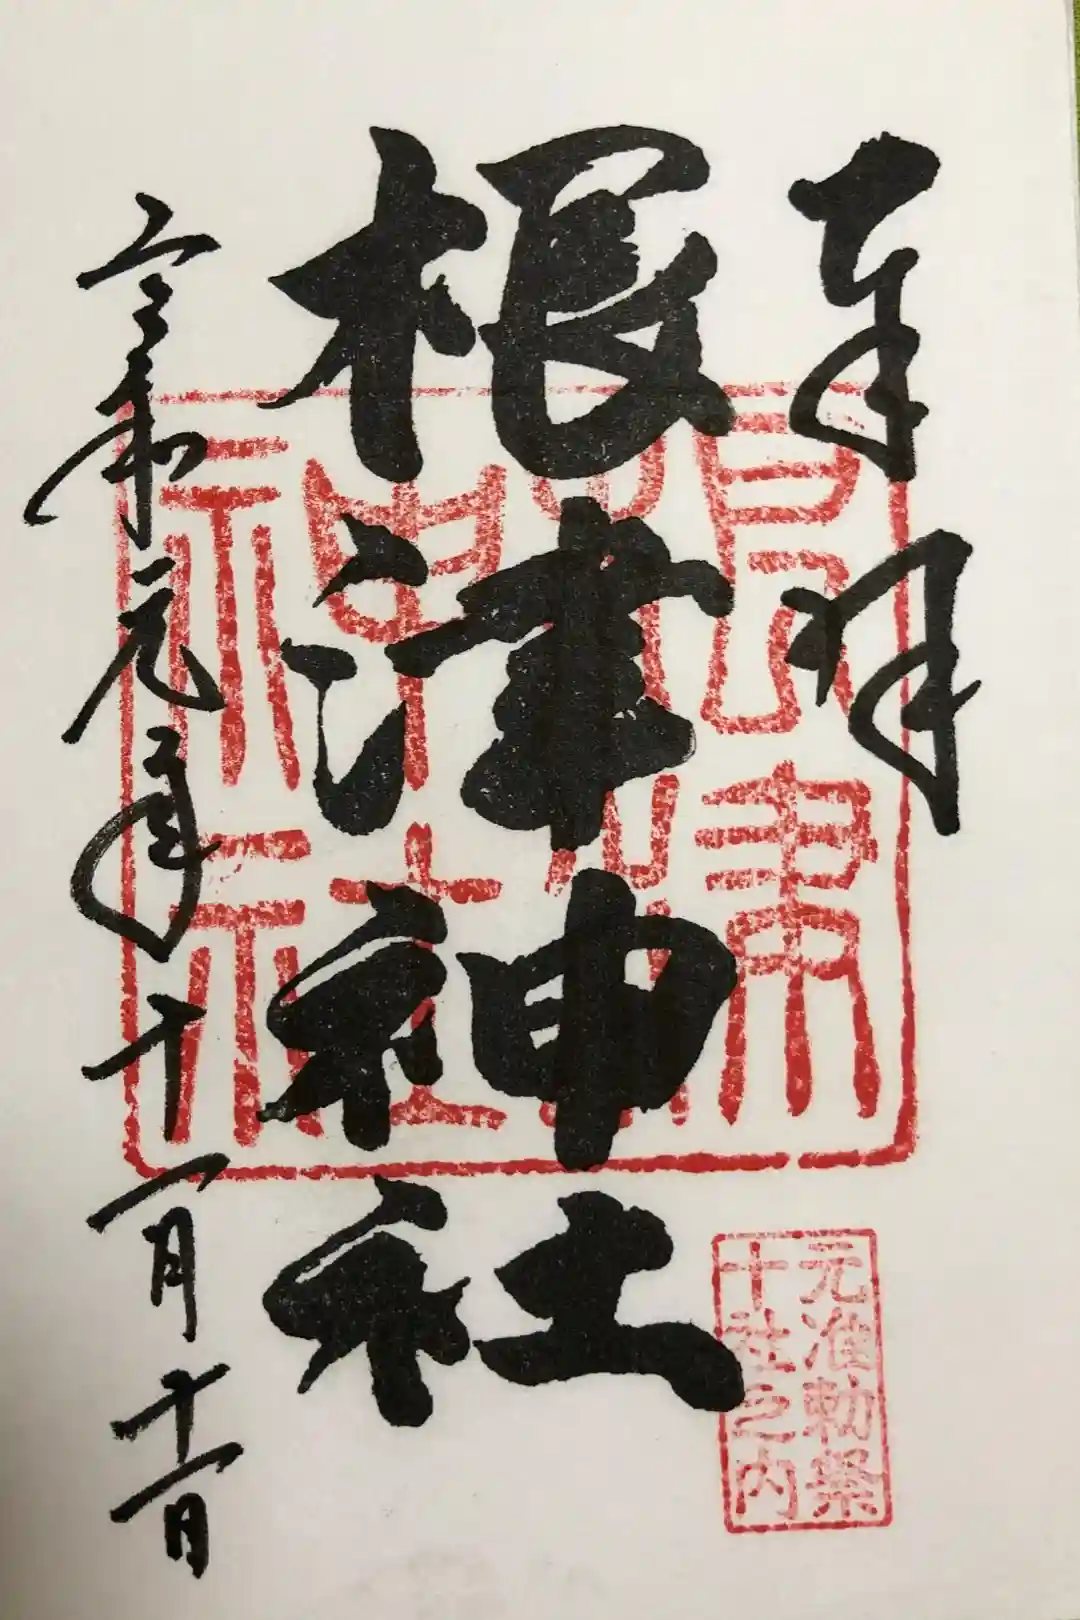 奉拝
根津神社
令和元年十一月十一日
根津
神社
元准勅祭
十社之内